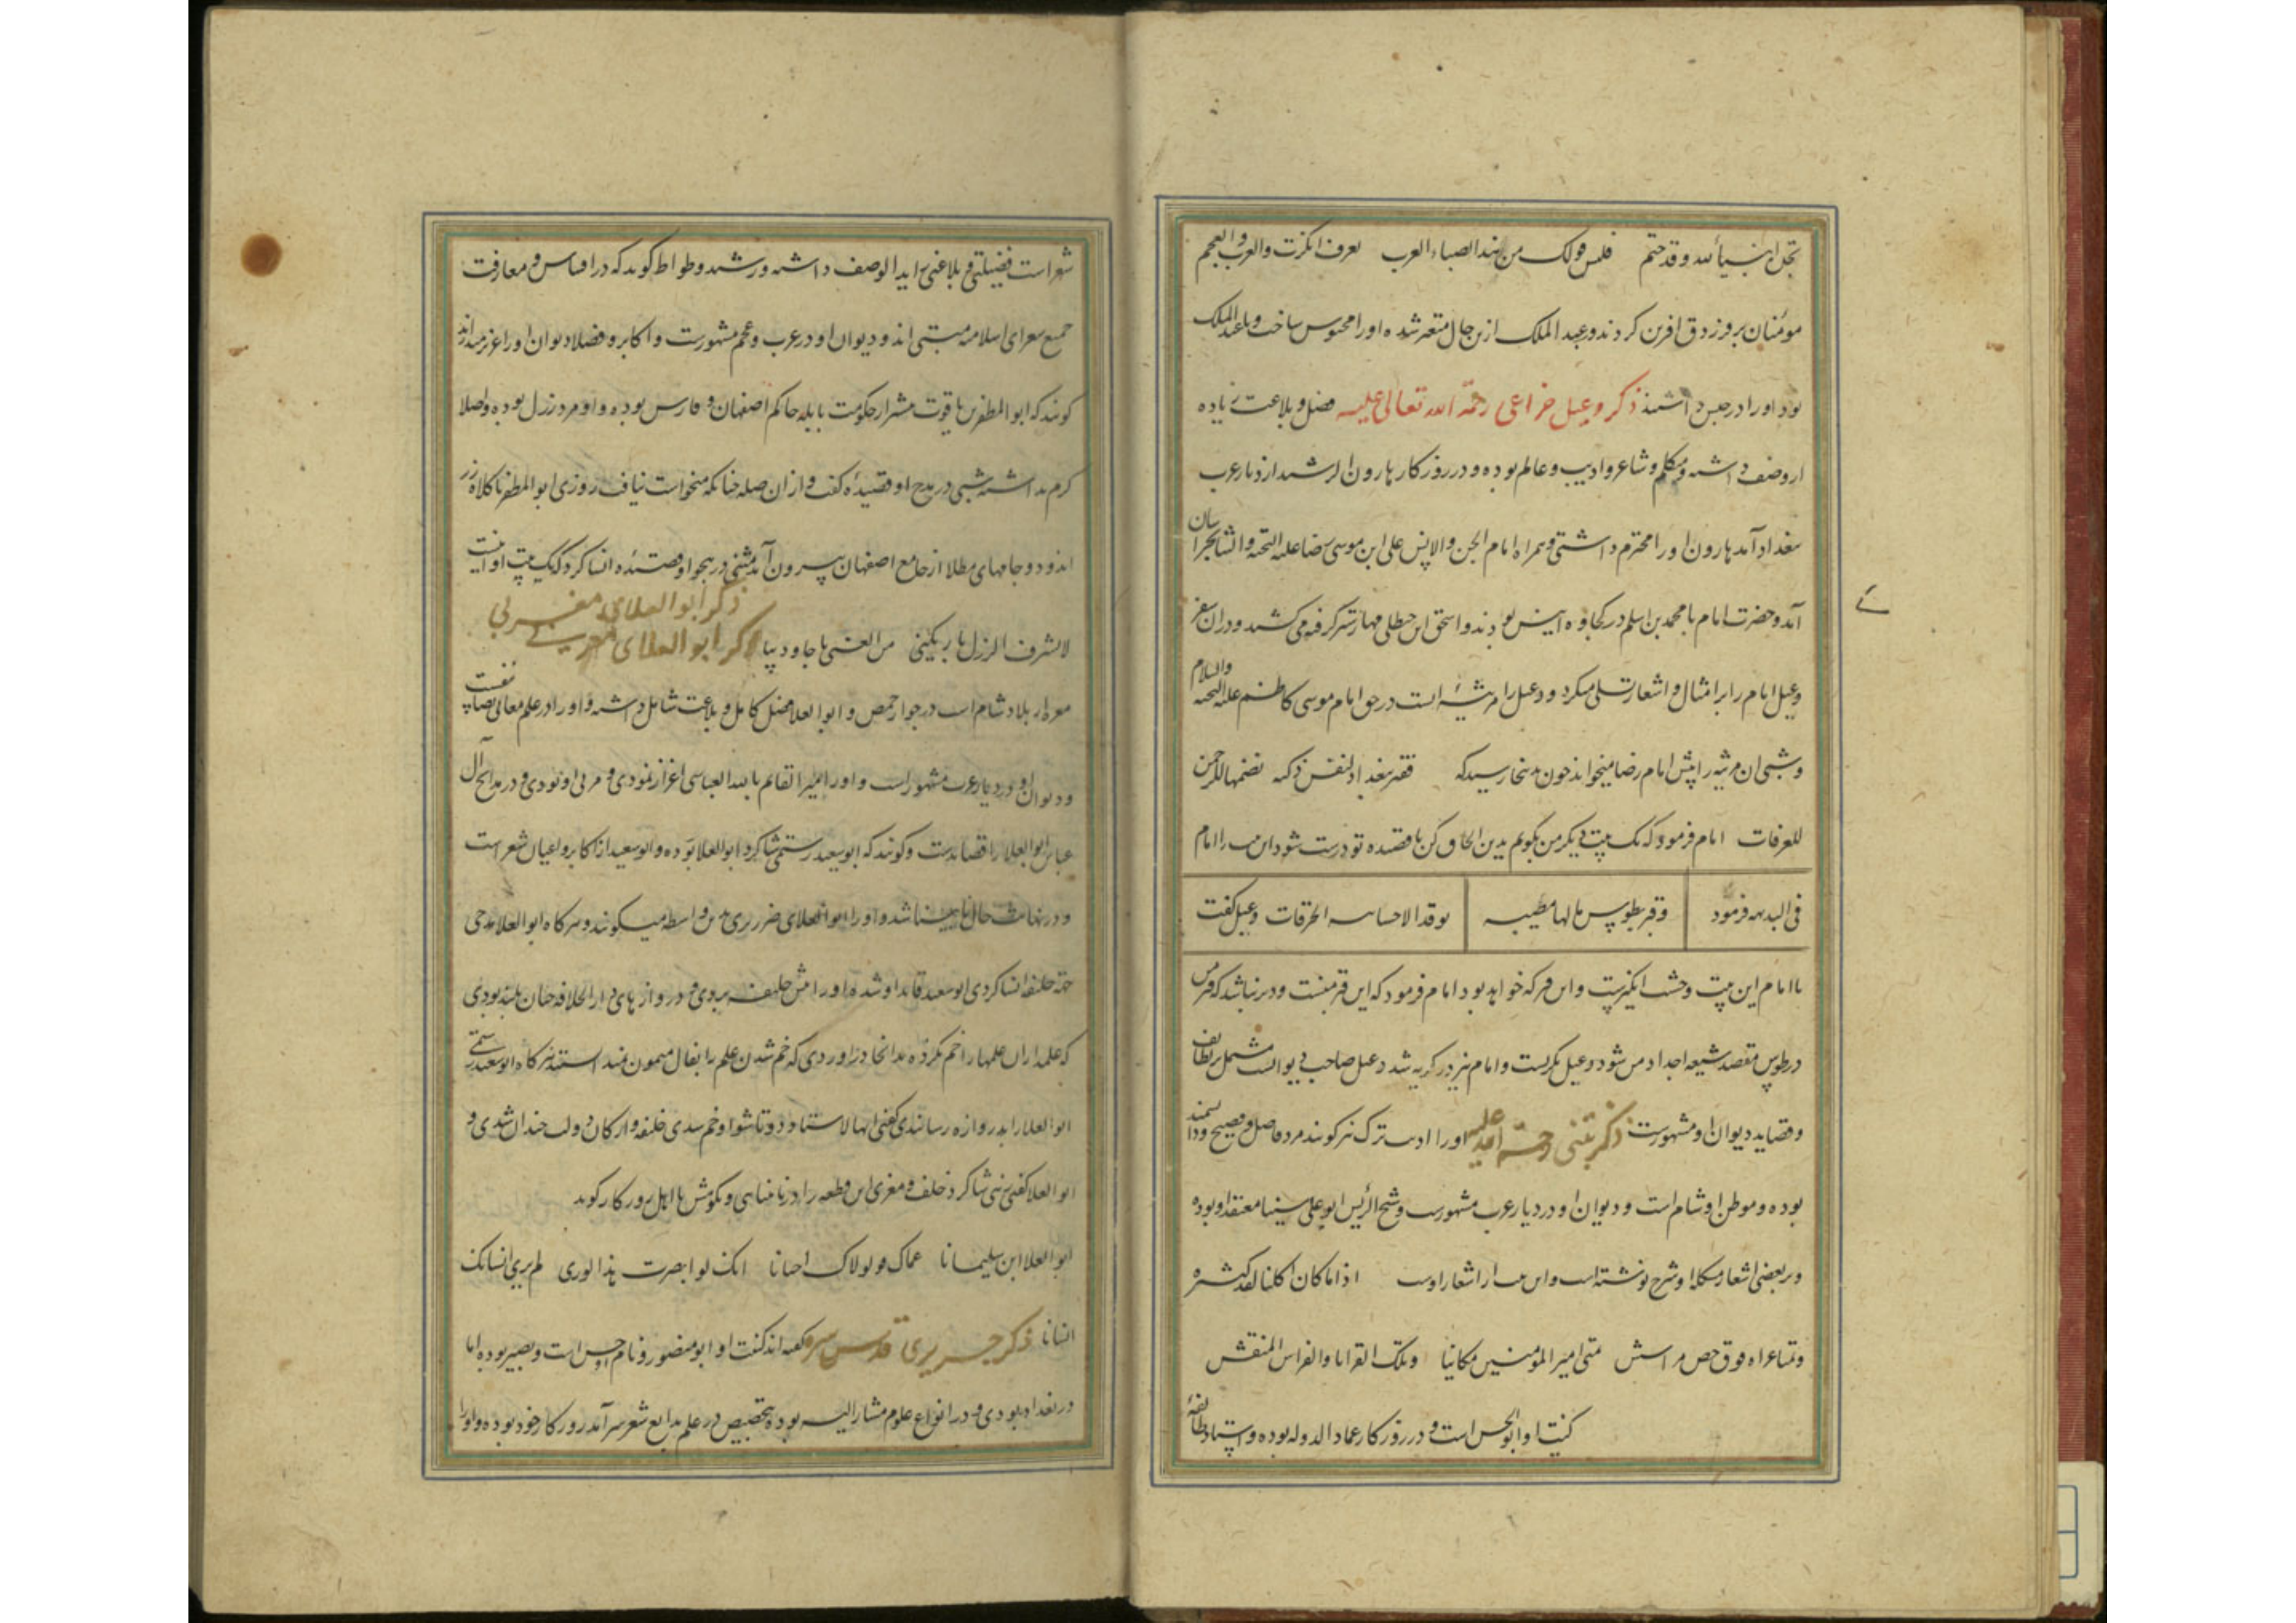 بجده انبیاء الله وقد ختم فلیس قولک من هذا بضائره العرب تعرف من انکرت والعجم
مؤمنان بر فرزدق آفرین کردند و عبد الملک ازین حال متغیر شده او را محبوس ساخت و تا عبد الملک
بود او را در حبس داشتند ذکر دعبل خزاعی رحمة الله تعالی علیه فضل و بلاغت زیاده
از وصف داشته و متکلم و شاعر و ادیب و عالم بوده و در روزگار هارون الرشید از دیار عرب
ببغداد آمد هارون او را محترم داشتی و همراه امام الجن والانس علی ابن موسی رضا علیه التحیه والثنا بخراسان
آمد و حضرت امام با محمد بن اسلم در کجاوه انیس بودند و اسحق ابن حنظلی مهار شتر گرفته می کشید و در آن سفر
دعبل امام را بامثال و اشعار تسلی میکرد و دعبل را مرثیه ایست در حق امام موسی کاظم علیه التحیه والسلام
و شبی آن مرثیه را پیش امام رضا میخواند چون بدینجا رسید که وقبر ببغداد لنفس زکیه تضمنها الرحمن
للغرفات امام فرمود که یک بیت دیگر من بگویم بدین الحاق کن تا قصیده تو درست شود این بیت را امام
فی البدیهه فرمود وقبر بطوس یا لها مصیبه توقد الاحشا بالحرقات دعبل گفت
یا امام این بیت وحشت انگیزست و این قبر که خواهد بود امام فرمود که این قبر منست و دیر نباشد که قبر من
در طوس مقصد شیعه اجداد من شود دعبل بگریست و امام نیز در گریه شد دعبل صاحب دیوانست مشتمل بر لطایف
و قصاید دیوان او مشهورست ذکر متنبی رحمة الله علیه او را ادیب ترک نیز گویند مرد فاضل و فصیح و دانشمند
بوده و موطن او شام است و دیوان او در دیار عرب مشهورست و شیخ الرئیس ابو علی سینا معتقد او بوده
و بر بعضی اشعار مشکله او شرح نوشته است و این بیت از اشعار اوست اذا ما کان اکلنا لقد کثره
متی امیر المؤمنین مکانیا وتلک القرایا والفراس المنقش
کنیت او ابو الحسن است و در روزگار عماد الدوله بوده و استاد طایفه
شعراست فضیلتی و بلاغتی زاید الوصف داشته و رشید وطواط گوید که در اقتباس و معارفت
جمیع شعرای اسلامیه متنبی اند و دیوان او در عرب و عجم مشهورست و اکابر و فضلا دیوان او را عزیز میدارند
گویند که ابو المظفر بن یاقوت حاکم اصفهان و فارس بوده و او مرد رزل بوده و اصلا
کرم نداشته متنبی در مدح او قصیده گفت و از آن صله چنانکه میخواست نیافت روزی ابو المظفر با کلاه زر
اندود و جامهای مطلا از جامع اصفهان بیرون آمد متنبی در هجو او قصیده انشا کرد که یک بیت او اینست
لا یشرف الرزل
ذکر ابو العلای مغربی
ذکر ابو العلای معری
معره از بلاد شام است در جوار حمص و ابو العلا فضل کامل و بلاغت شامل داشته و او را در علم معانی تصانیفست
و دیوان او در دیار عرب مشهور است و او را امیر القائم بالله العباسی اعزاز نمودی و مربی او بودی و در مدایح آل
عباس ابو العلا را قصایدست و گویند که ابو سعید رستمی شاگرد ابو العلا بوده و ابو سعید از اکابر و اعیان شعر است
و در نهایت حال نابینا شد و او را ابو العلای ضریر بدین واسطه میگویند و هر گاه ابو العلا مدحی
جهة خلیفه انشا کردی ابو سعید قاید او شده او را پیش خلیفه بردی و دروازهای دار الخلافه چنان بلند بودی
که علمداران علمها را خم نکرده بدانجا درآوردی که خم شدن علم را بفال میمون نمیدانستند هر گاه ابو سعید رستمی
ابو العلا را بدروازه رسانیدی گفتی ایها الاستاد دوتا شو او خم شدی خلیفه و ارکان دولت خندان شدی و
ابو العلا گفتی زهی شاگرد خلف و معری این قطعه را در نابینایی و نکوهش اهل روزگار گوید
ابو العلا ابن سلیمانا عماک قد اولاک احسانا انک لو ابصرت هذا الوری لم یری انسانک
انسانا ذکر حریری قدس سره گفته اند کنیت او ابو منصور و نام او حسن است و بصیر بوده اما
در بغداد بودی و در انواع علوم مشار الیه بوده بتخصیص در علم بدایع شعر سرآمد روزگار خود بوده و او را